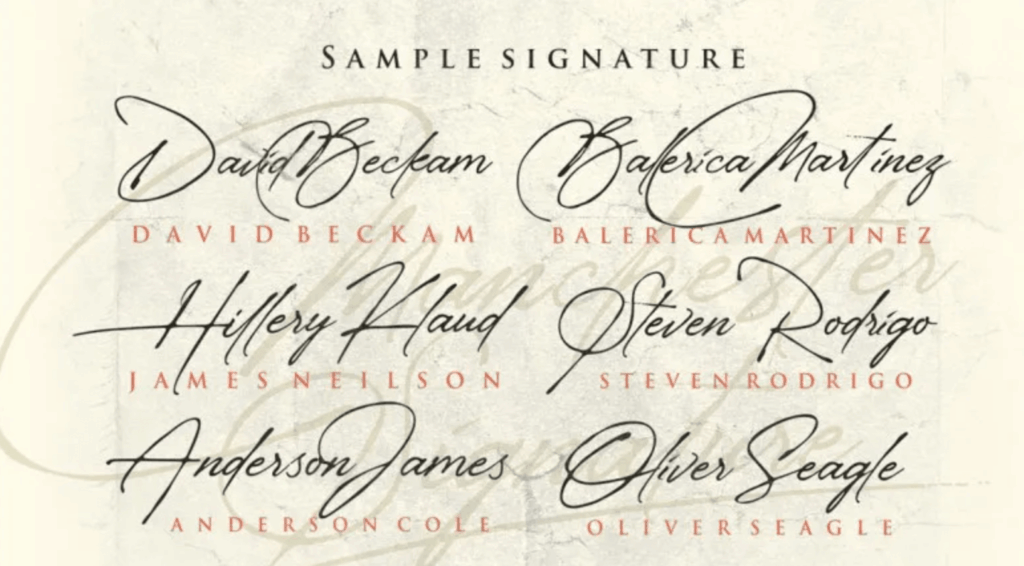 SAMPLE SIGNATURE
David Beckam Balerica Martinez
DAVID BECKAM BALERICA MARTINEZ
Hillery Klaud Steven Rodrigo
JAMES NEILSON STEVEN RODRIGO
Anderson James Oliver Seagle
ANDERSON COLE OLIVER SEAGLE
Manchester
Signature